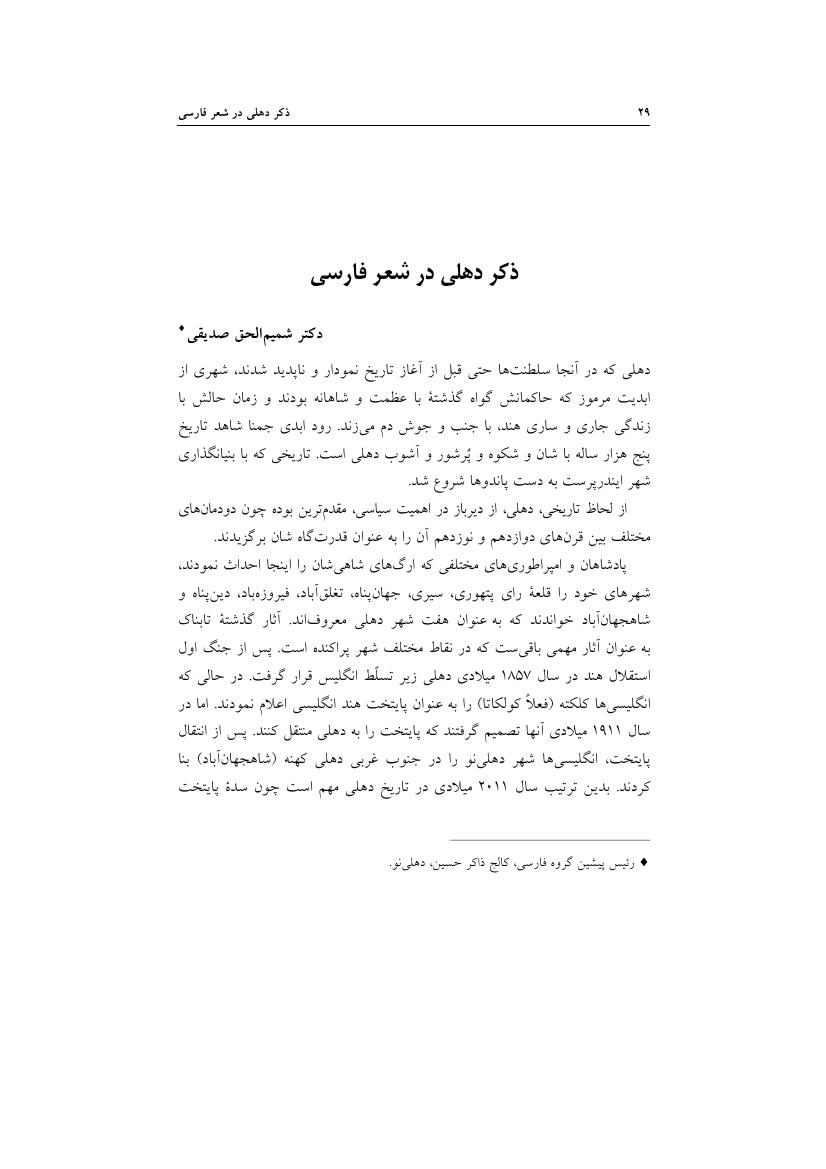 ۲۹ ذکر دهلی در شعر فارسی
ذکر دهلی در شعر فارسی
دکتر شمیم‌الحق صدیقی♦
دهلی که در آنجا سلطنت‌ها حتی قبل از آغاز تاریخ نمودار و ناپدید شدند، شهری از
ابدیت مرموز که حاکمانش گواه گذشتهٔ با عظمت و شاهانه بودند و زمان حالش با
زندگی جاری و ساری هند، با جنب و جوش دم می‌زند. رود ابدی جمنا شاهد تاریخ
پنج هزار ساله با شان و شکوه و پُرشور و آشوب دهلی است. تاریخی که با بنیانگذاری
شهر ایندرپرست به دست پاندوها شروع شد.
از لحاظ تاریخی، دهلی، از دیرباز در اهمیت سیاسی، مقدم‌ترین بوده چون دودمان‌های
مختلف بین قرن‌های دوازدهم و نوزدهم آن را به عنوان قدرت‌گاه شان برگزیدند.
پادشاهان و امپراطوری‌های مختلفی که ارگ‌های شاهی‌شان را اینجا احداث نمودند،
شهرهای خود را قلعهٔ رای پتهوری، سیری، جهان‌پناه، تغلق‌آباد، فیروزه‌باد، دین‌پناه و
شاهجهان‌آباد خواندند که به عنوان هفت شهر دهلی معروف‌اند. آثار گذشتهٔ تابناک
به عنوان آثار مهمی باقی‌ست که در نقاط مختلف شهر پراکنده است. پس از جنگ اول
استقلال هند در سال ۱۸۵۷ میلادی دهلی زیر تسلّط انگلیس قرار گرفت. در حالی که
انگلیسی‌ها کلکته (فعلاً کولکاتا) را به عنوان پایتخت هند انگلیسی اعلام نمودند. اما در
سال ۱۹۱۱ میلادی آنها تصمیم گرفتند که پایتخت را به دهلی منتقل کنند. پس از انتقال
پایتخت، انگلیسی‌ها شهر دهلی‌نو را در جنوب غربی دهلی کهنه (شاهجهان‌آباد) بنا
کردند. بدین ترتیب سال ۲۰۱۱ میلادی در تاریخ دهلی مهم است چون سدهٔ پایتخت
♦ رئیس پیشین گروه فارسی، کالج ذاکر حسین، دهلی‌نو.